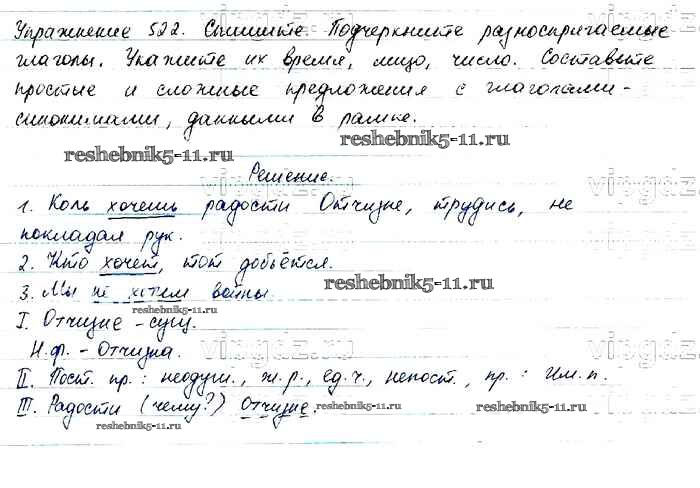 Упражнение 522. Спишите. Подчеркните разноспрягаемые
глаголы. Укажите их время, лицо, число. Составьте
простые и сложные предложения с глаголами-
синонимами, данными в рамке.
reshebnik5-11.ru
reshebnik5-11.ru
Решение.
vipgdz.ru
1. Коль хочешь радости Отчизне, трудись, не
покладая рук.
2. Кто хочет, тот добьётся.
reshebnik5-11.ru
3. Мы не хотим войны.
reshebnik5-11.ru
I. Отчизне - сущ.
Н.ф. - Отчизна.
vipgdz.ru
II. Пост. пр.: неодуш., ж.р., ед.ч., непост., пр.: Им.п.
III. Радости (чему?) Отчизне.
reshebnik5-11.ru
reshebnik5-11.ru
reshebnik5-11.ru